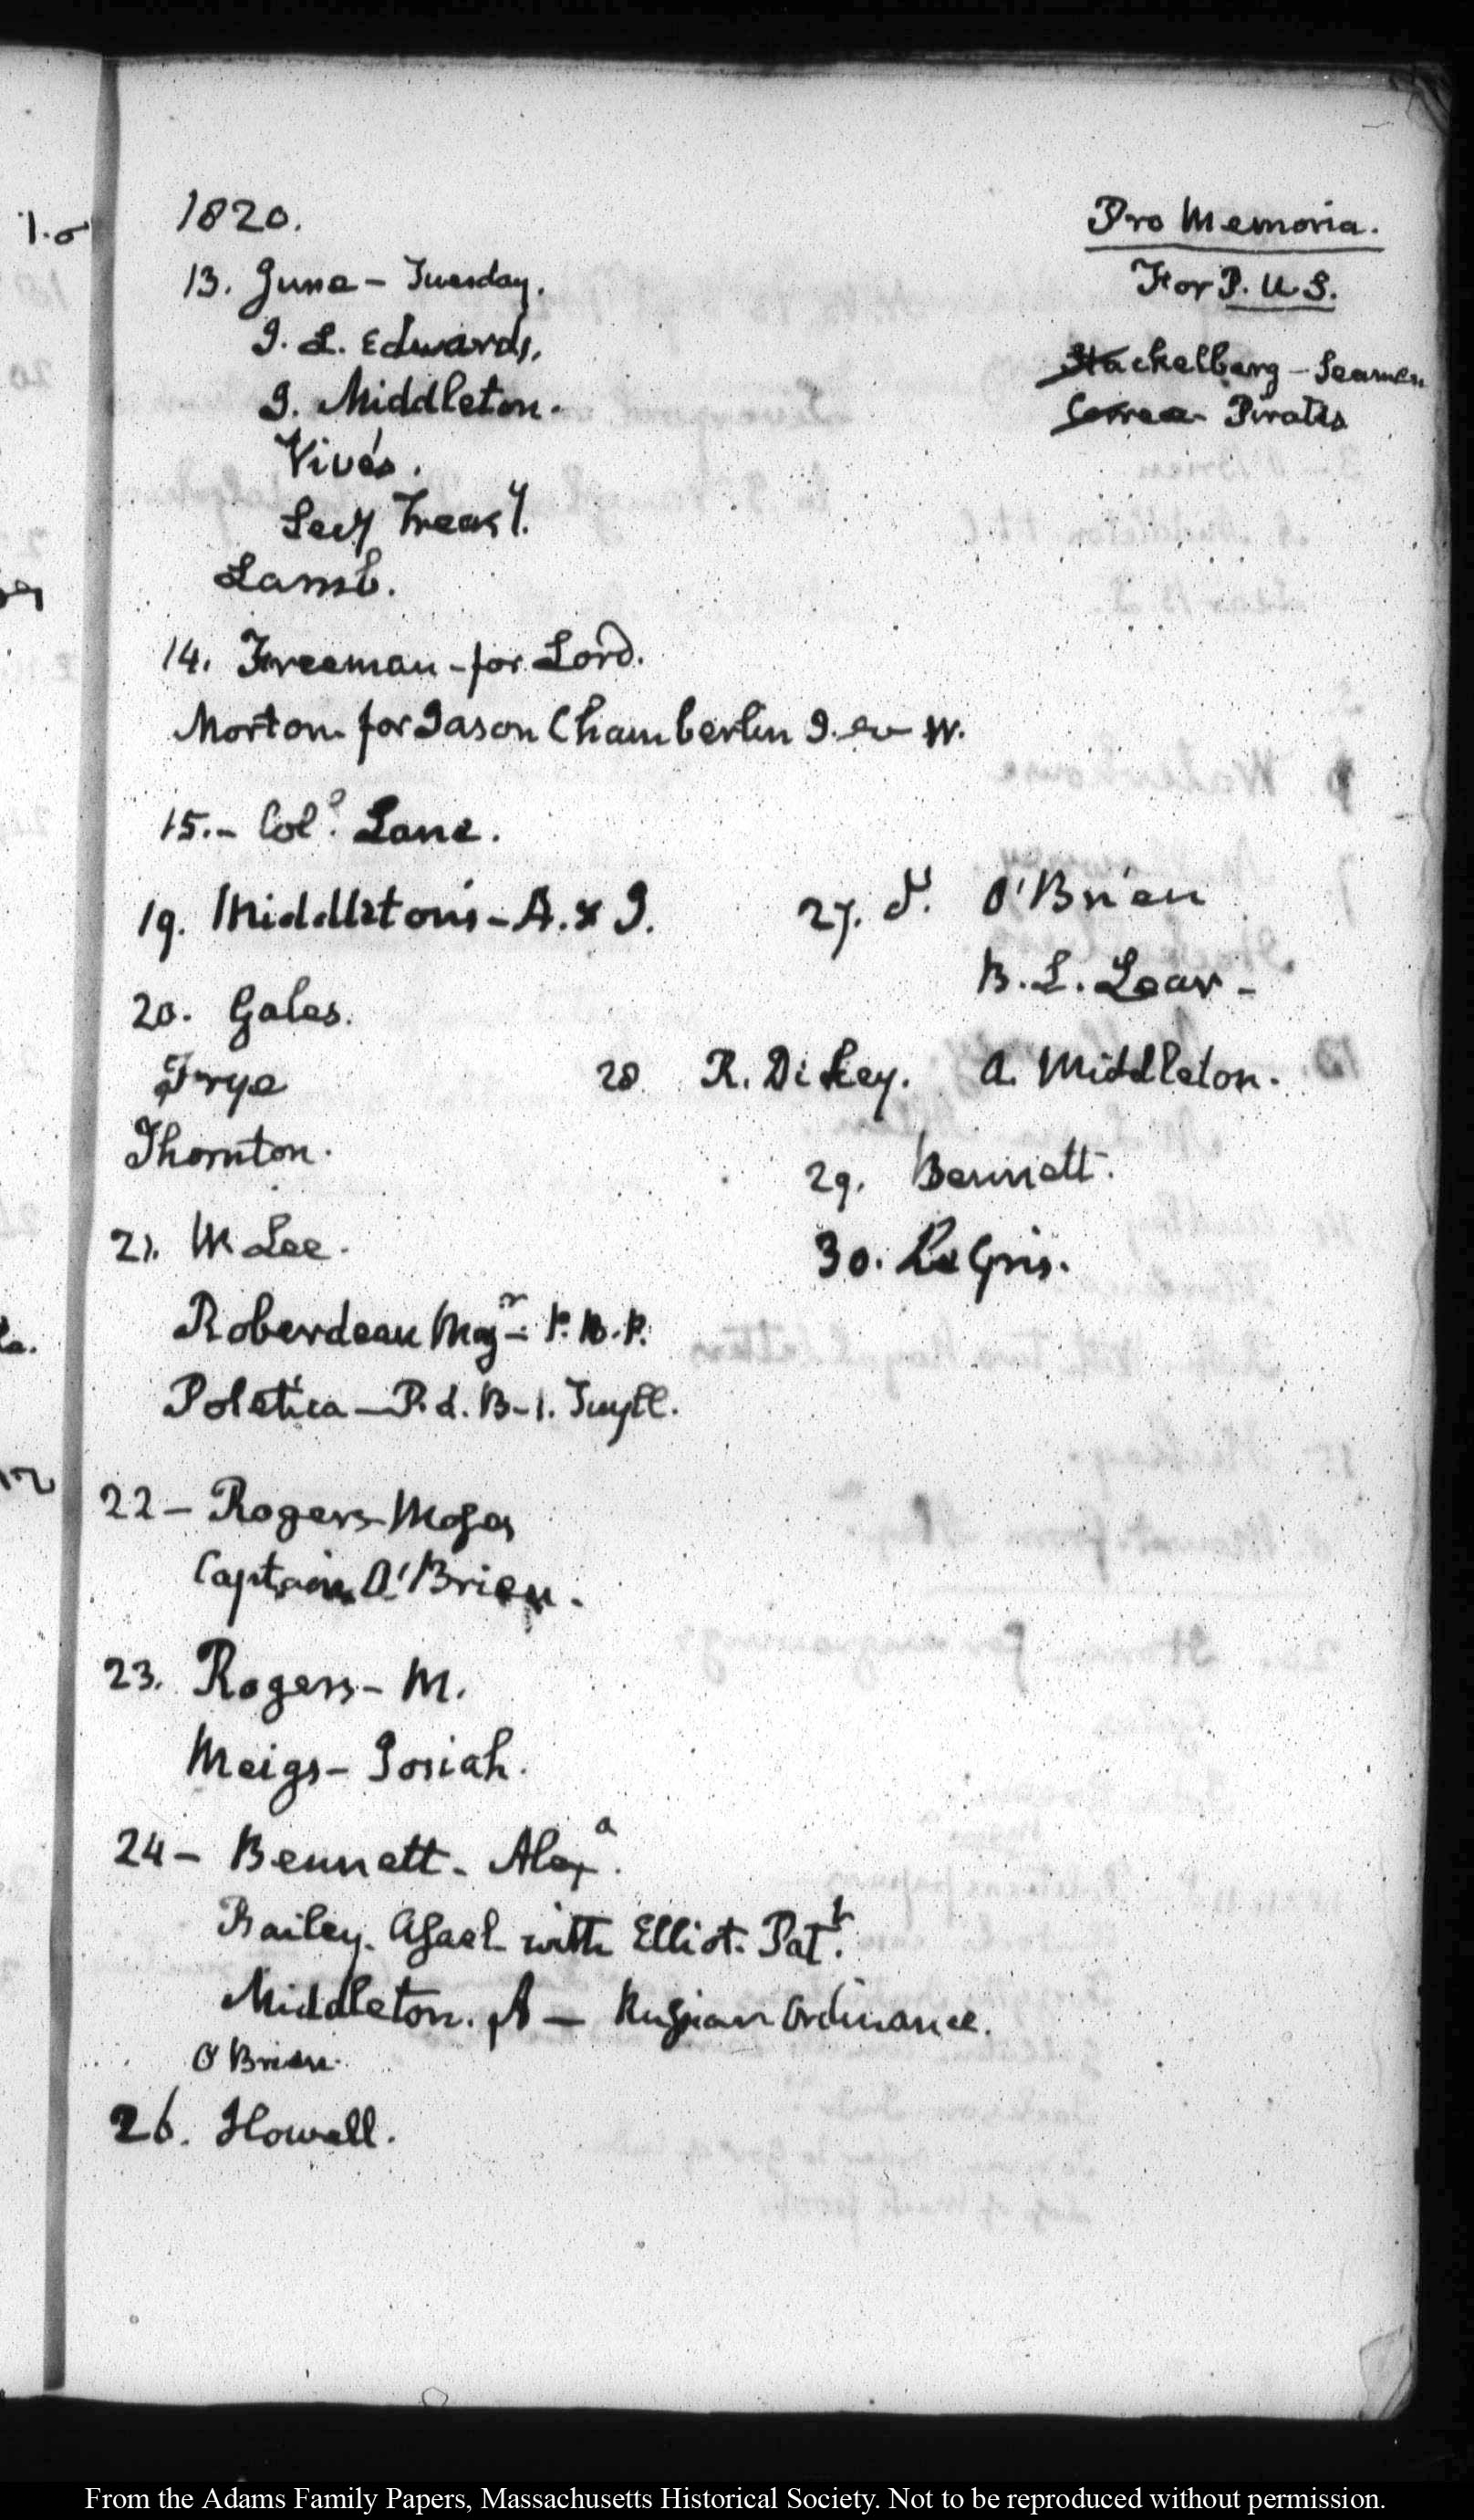 1820.
13. June - Tuesday.
J. L. Edwards.
J. Middleton.
Vivés.
Secy Treasy.
Lamb.
14. Freeman - for Lord.
Morton for Jason Chamberlin J. W.
15. - Coll. Lane.
19. Middleton's - A. & J.
20. Gales.
Frye
Thornton.
21. W Lee.
Roberdeau Majr - P. B. P.
Poletica - P. d. B - 1. Tuyll.
22 - Rogers - Moses
Captain O'Brien.
23. Rogers - M.
Meigs - Josiah.
24 - Bennett - Alexa.
Bailey. Asael with Elliot. Patk.
Middleton. A - Russian Ordinance.
O'Brien.
26. Howell.
Pro Memoria.
For P. U.S.
Stackelberg - Seamen
Correa - Pirates
27. O'Brien
B. L. Lear -
28 R. Dickey. A. Middleton.
29. Bennett.
30. LeGris.
From the Adams Family Papers, Massachusetts Historical Society. Not to be reproduced without permission.